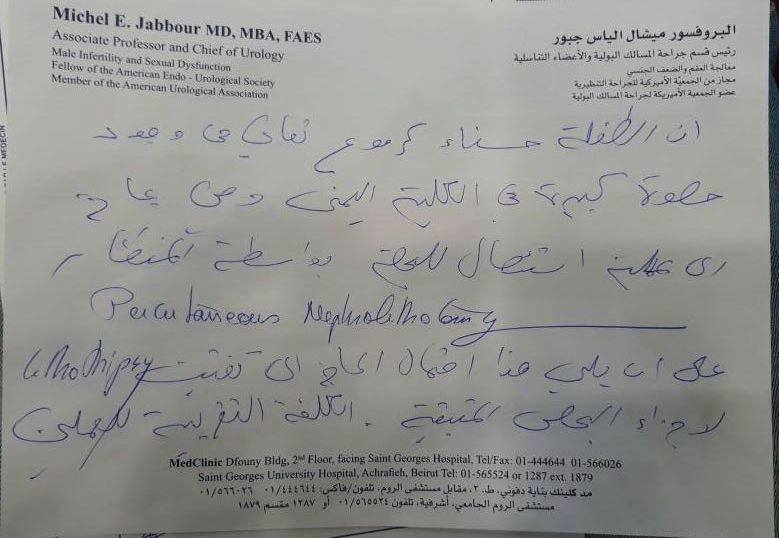 Michel E. Jabbour MD, MBA, FAES
Associate Professor and Chief of Urology
Male Infertility and Sexual Dysfunction
Fellow of the American Endo - Urological Society
Member of the American Urological Association
البروفسور ميشال الياس جبور
رئيس قسم جراحة المسالك البولية والأعضاء التناسلية
معالجة العقم والضعف الجنسي
مجاز من الجمعية الأميركية للجراحة التنظيرية
عضو الجمعية الأميركية لجراحة المسالك البولية
ان الطفلة حسناء تعاني من وجود
حصوة كبيرة في الكلية اليمنى وهي بحاجة
الى عملية استئصال للبحصة بواسطة المنظار
Percutaneous Nephrolithotomy
على ان يلي هذا احتمال الحاجة الى تفتيت lithotripsy
لاجزاء البحص المتبقية . الكلفة التقريبية للعملية
MedClinic Dfouny Bldg, 2nd Floor, facing Saint Georges Hospital, Tel/Fax: 01-444644 01-566026
Saint Georges University Hospital, Achrafieh, Beirut Tel: 01-565524 or 1287 ext. 1879
مد كلينك بناية دفوني، ط. ٢، مقابل مستشفى الروم، تلفون/فاكس: ٠١/٤٤٤٦٤٤ ٠١/٥٦٦٠٢٦
مستشفى الروم الجامعي، أشرفية، تلفون ٠١/٥٦٥٥٢٤ أو ١٢٨٧ مقسم ١٨٧٩